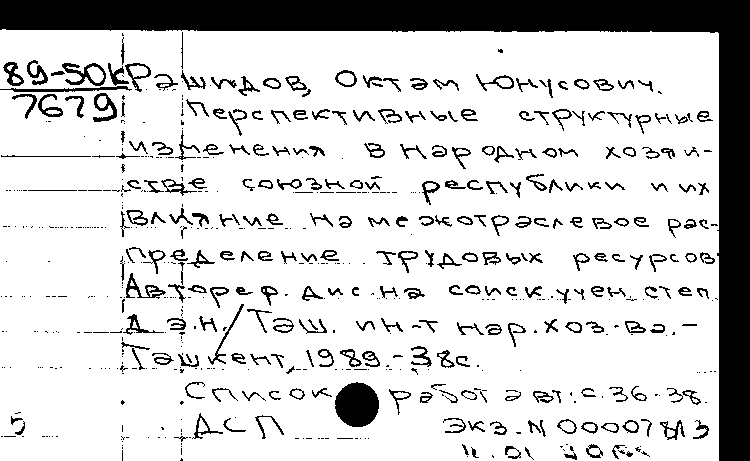 89-50к Рашидов, Октам Юнусович.
7679
Перспективные структурные
изменения в народном хозяй-
стве союзной республики и их
влияние на межотраслевое рас-
пределение трудовых ресурсов
Автореф. дис. на соиск. учен. степ.
д. э. н. / Таш. ин-т нар. хоз-ва. -
Ташкент, 1989. - 38с.
Список работ авт.: с. 36-38.
5 ДСП Экз. N